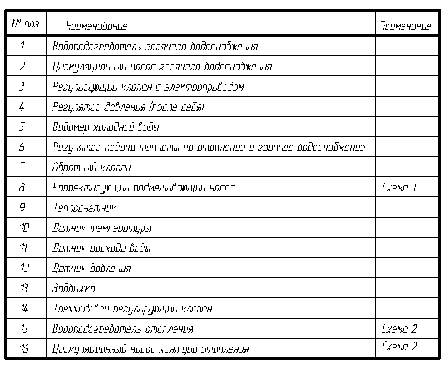 № поз. Наименование Примечание
1 Водоподогреватель горячего водоснабжения
2 Циркуляционный насос горячего водоснабжения
3 Регулирующий клапан с электроприводом
4 Регулятор давления (после себя)
5 Водомер холодной воды
6 Регулятор подачи теплоты на отопление и горячее водоснабжение
7 Обратный клапан
8 Корректирующий подмешивающий насос Схема 1
9 Теплосчетчик
10 Датчик температуры
11 Датчик расхода воды
12 Датчик давления
13 Задвижка
14 Трехходовой регулирующий клапан
15 Водоподогреватель отопления Схема 2
16 Циркуляционный насос контура отопления Схема 2